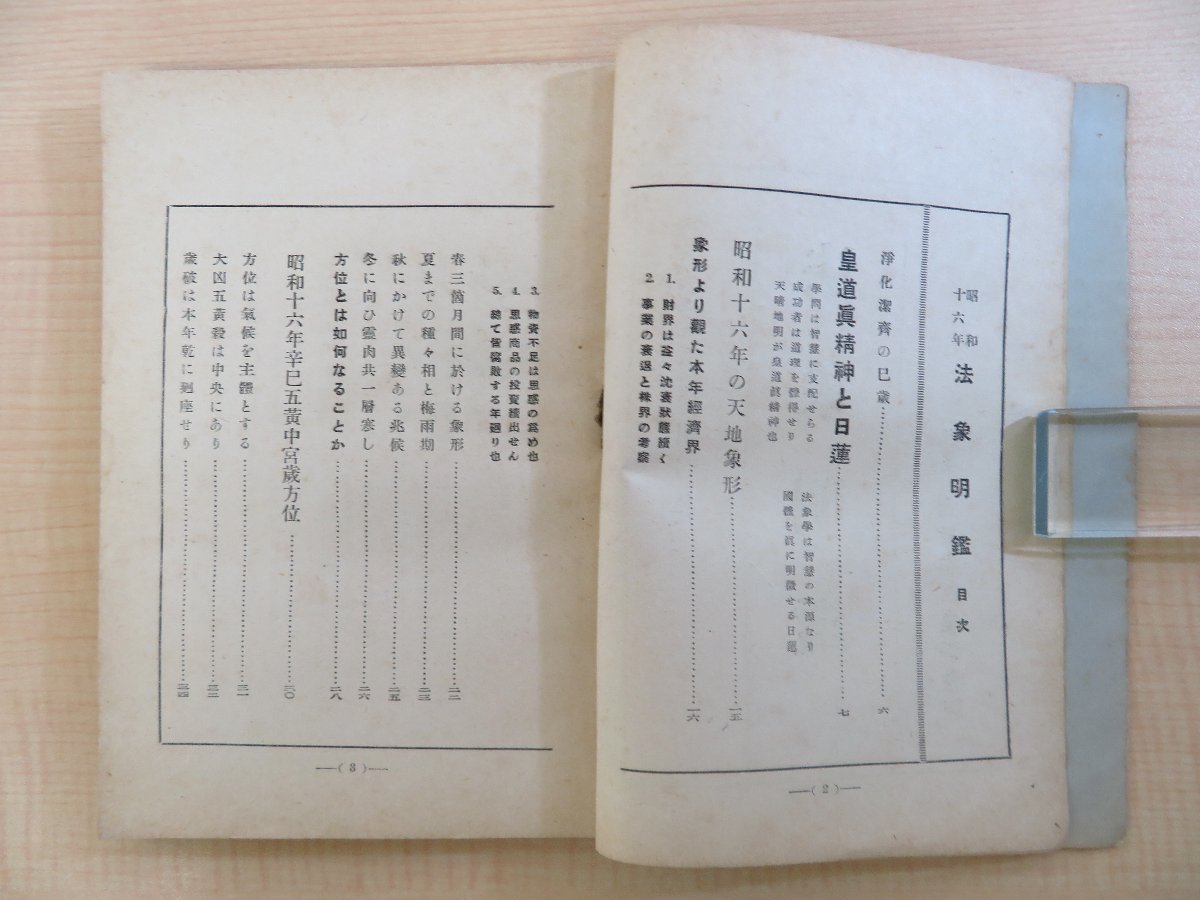 昭和十六年 法象明鑑 目次
淨化潔齊の巳歳……六
皇道眞精神と日蓮……七
學問は智慧に支配せらる
成功者は道理を體得せり
天晴地明が皇道眞精神也
法象學は智慧の本源なり
國體を眞に明徴せる日蓮
昭和十六年の天地象形……一五
象形より觀た本年經濟界……一六
1. 財界は益々沈衰狀態續く
2. 事業の衰退と株界の考察
—(2)—
3. 物資不足は思惑の爲め也
4. 思惑商品の投賣續出せん
5. 總て皆腐敗する年廻り也
春三箇月間に於ける象形……二二
夏までの種々相と梅雨期……二三
秋にかけて異變ある兆候……二五
冬に向ひ靈肉共一層寒し……二六
方位とは如何なることか……二八
昭和十六年辛巳五黃中宮歲方位……三〇
方位は氣候を主體とする……三一
大凶五黃殺は中央にあり……三三
歲破は本年乾に廻座せり……三四
—(3)—